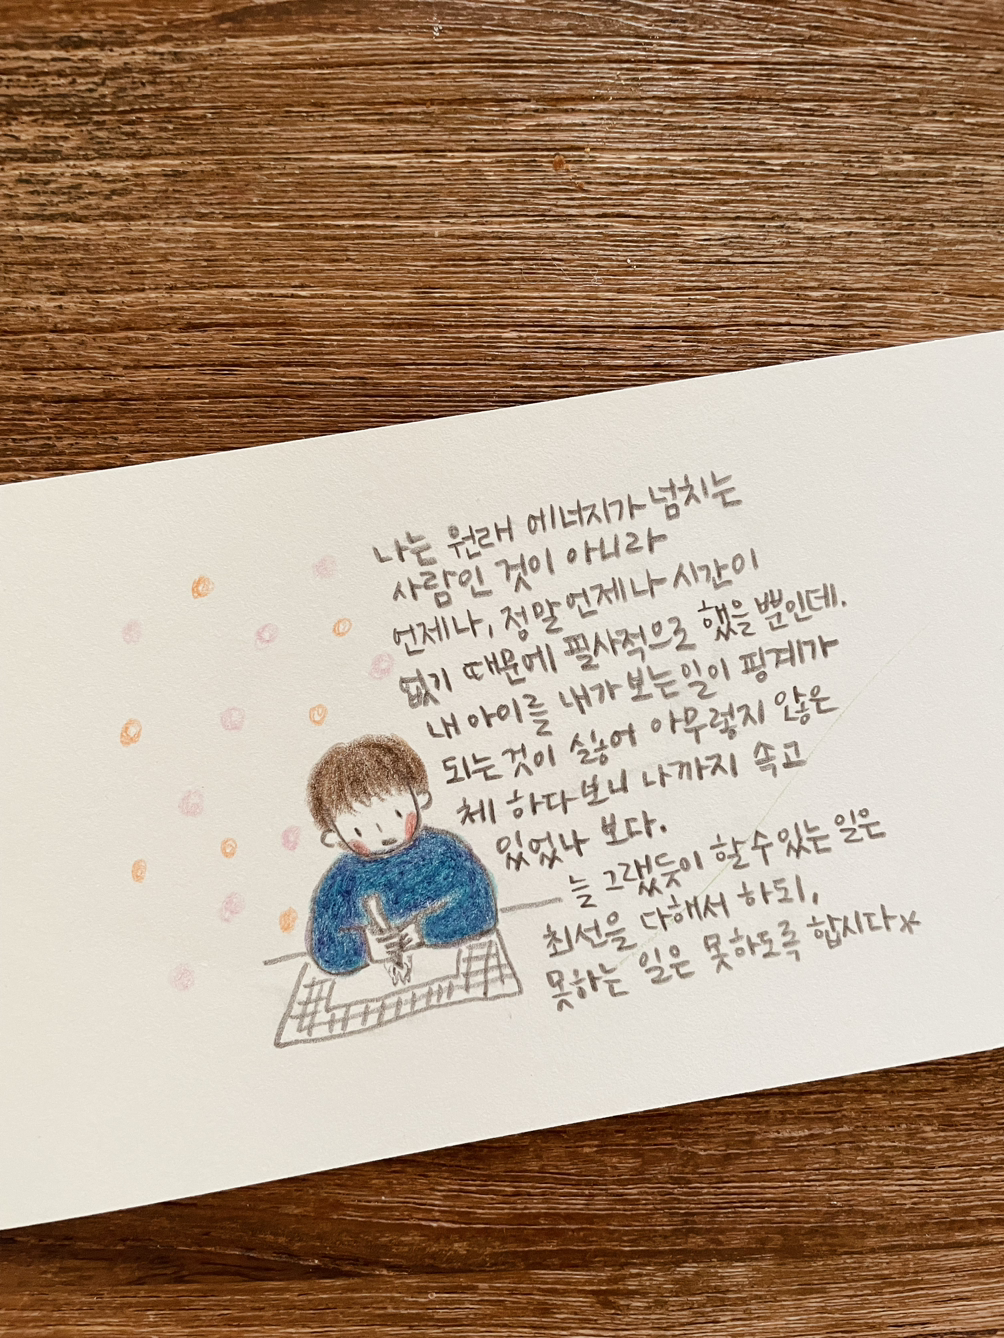 나는 원래 에너지가 넘치는
사람인 것이 아니라
언제나, 정말 언제나 시간이
없기 때문에 필사적으로 했을 뿐인데.
내 아이를 내가 보는 일이 핑계가
되는 것이 싫어 아무렇지 않은
체 하다보니 나까지 속고
있었나 보다.
늘 그랬듯이 할 수 있는 일은
최선을 다해서 하되,
못하는 일은 못하도록 합시다